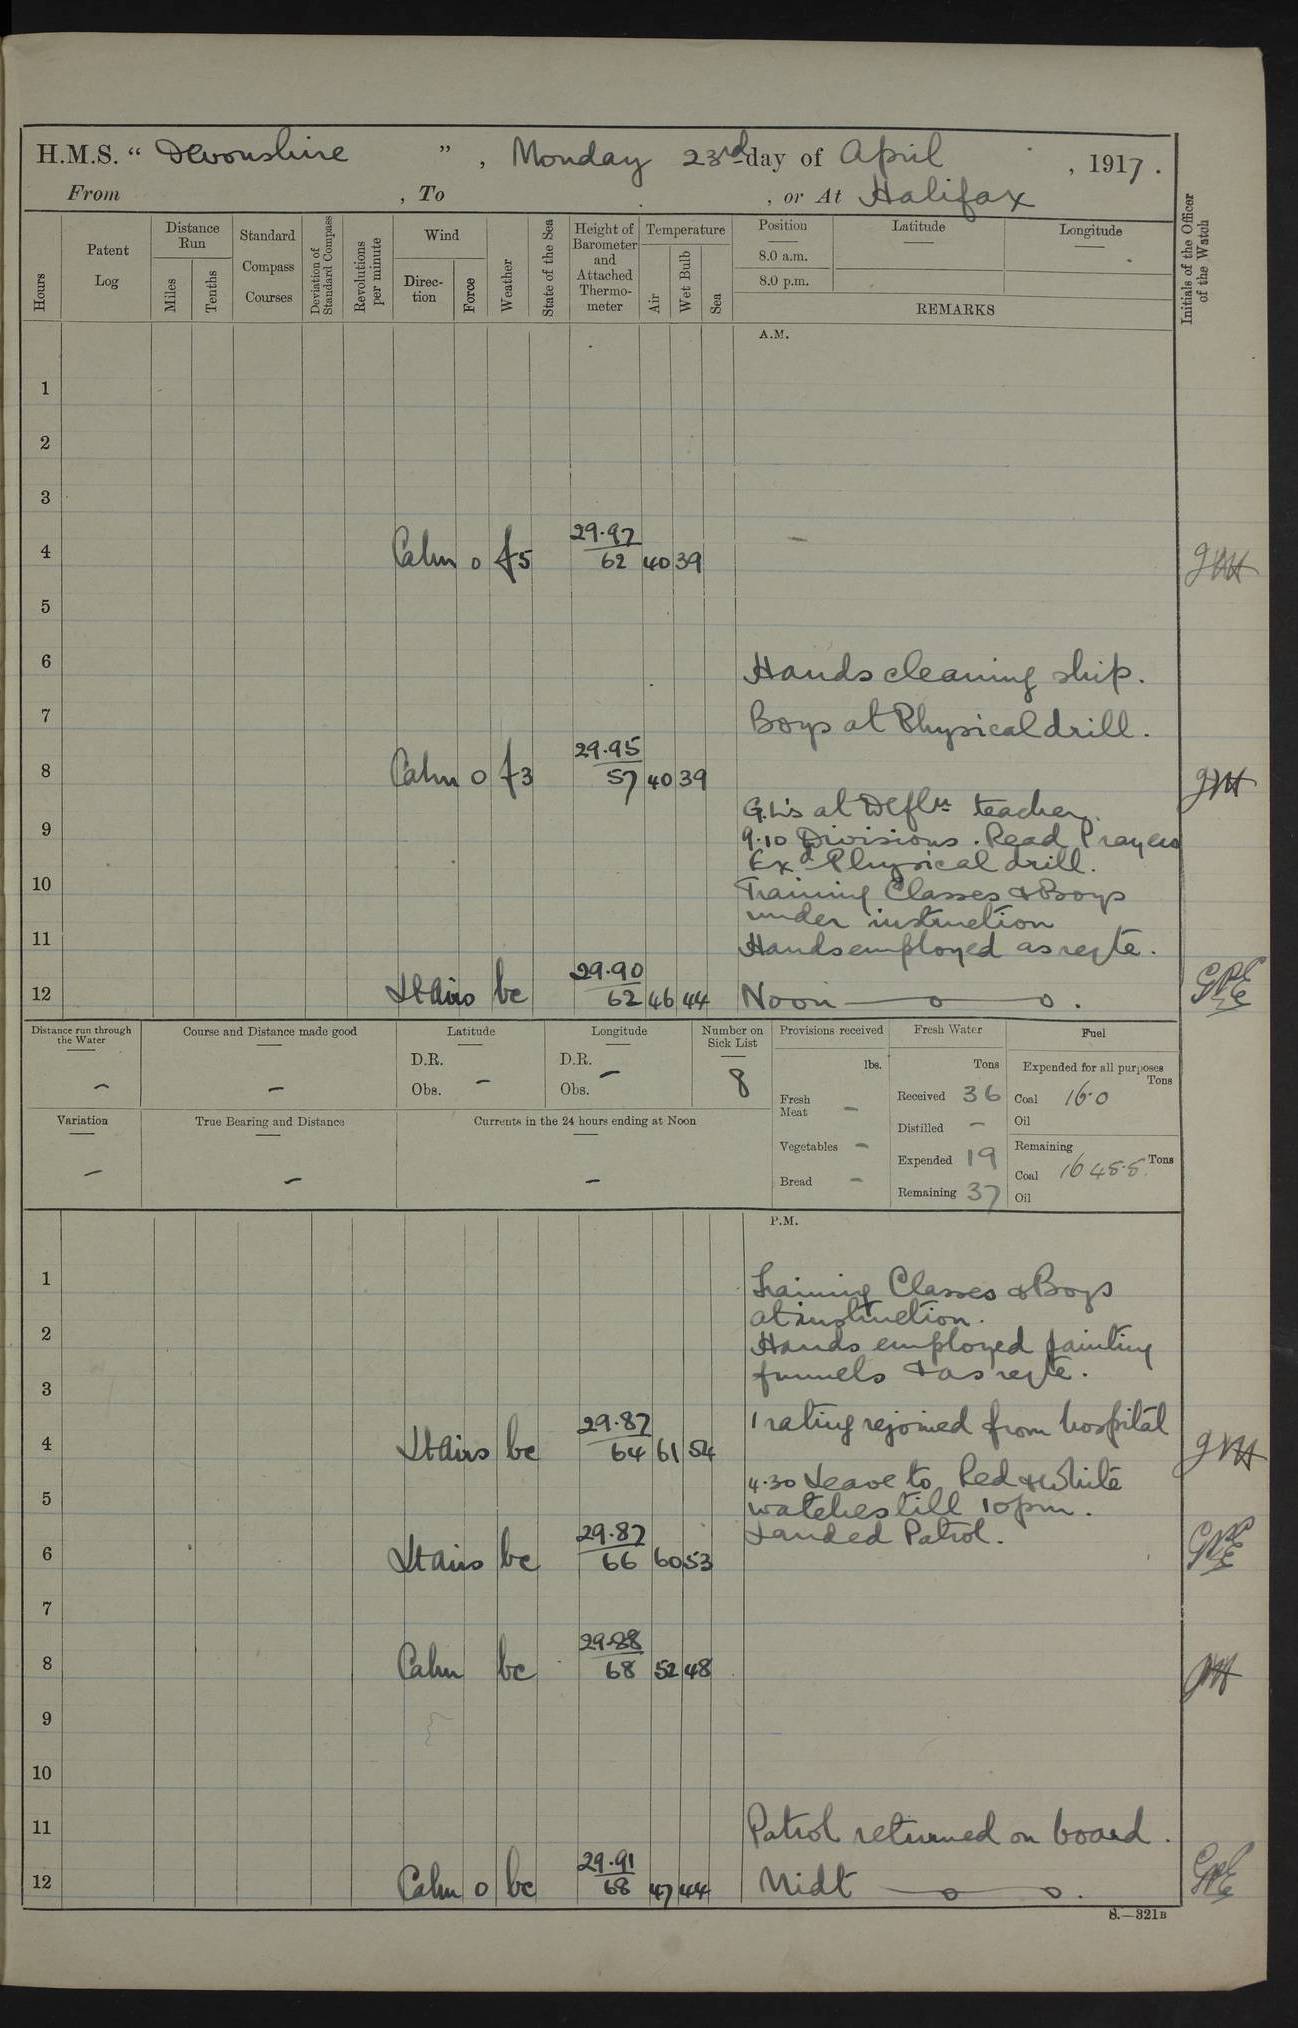 H.M.S. " Devonshire " , Monday 23rd day of April , 1917.
From , To , or At Halifax
Hours
Patent Log
Distance Run
Miles
Tenths
Standard Compass Courses
Deviation of Standard Compass
Revolutions per minute
Wind
Direc-tion
Force
Weather
State of the Sea
Height of Barometer and Attached Thermo-meter
Temperature
Air
Wet Bulb
Sea
Position
8.0 a.m.
8.0 p.m.
Latitude
Longitude
REMARKS
Initials of the Officer of the Watch
A.M.
1
2
3
4 Calm 0 f5 29.97 62 40 39
5
6 Hands cleaning ship.
7 Boys at Physical drill.
8 Calm 0 f3 29.95 57 40 39
G.L's at Deflr teacher.
9 9.10 Divisions. Read Prayers
Exd Physical drill.
10 Training Classes & Boys
under instruction
11 Hands employed as reqte.
12 Lt Airs bc 29.90 62 46 44 Noon
Distance run through the Water
-
Course and Distance made good
-
Latitude
D.R.
Obs. -
Longitude
D.R.
Obs. -
Number on Sick List
8
Provisions received
lbs.
Fresh Meat -
Vegetables -
Bread -
Fresh Water
Tons
Received 36
Distilled -
Expended 19
Remaining 37
Fuel
Expended for all purposes
Tons
Coal 16.0
Oil
Remaining
Tons
Coal 1645.5
Oil
Variation
-
True Bearing and Distance
-
Currents in the 24 hours ending at Noon
-
P.M.
1 Training Classes & Boys
at instruction.
2 Hands employed painting
3 funnels & as reqte.
1 rating rejoined from hospital
4 Lt Airs bc 29.87 64 61 54
4.30 Leave to Red & White
5 watches till 10pm.
Landed Patrol.
6 Lt airs bc 29.87 66 60 53
7
8 Calm bc 29.88 68 52 48
9
10
11 Patrol returned on board.
12 Calm 0 bc 29.91 68 47 44 Midt
S.—321B